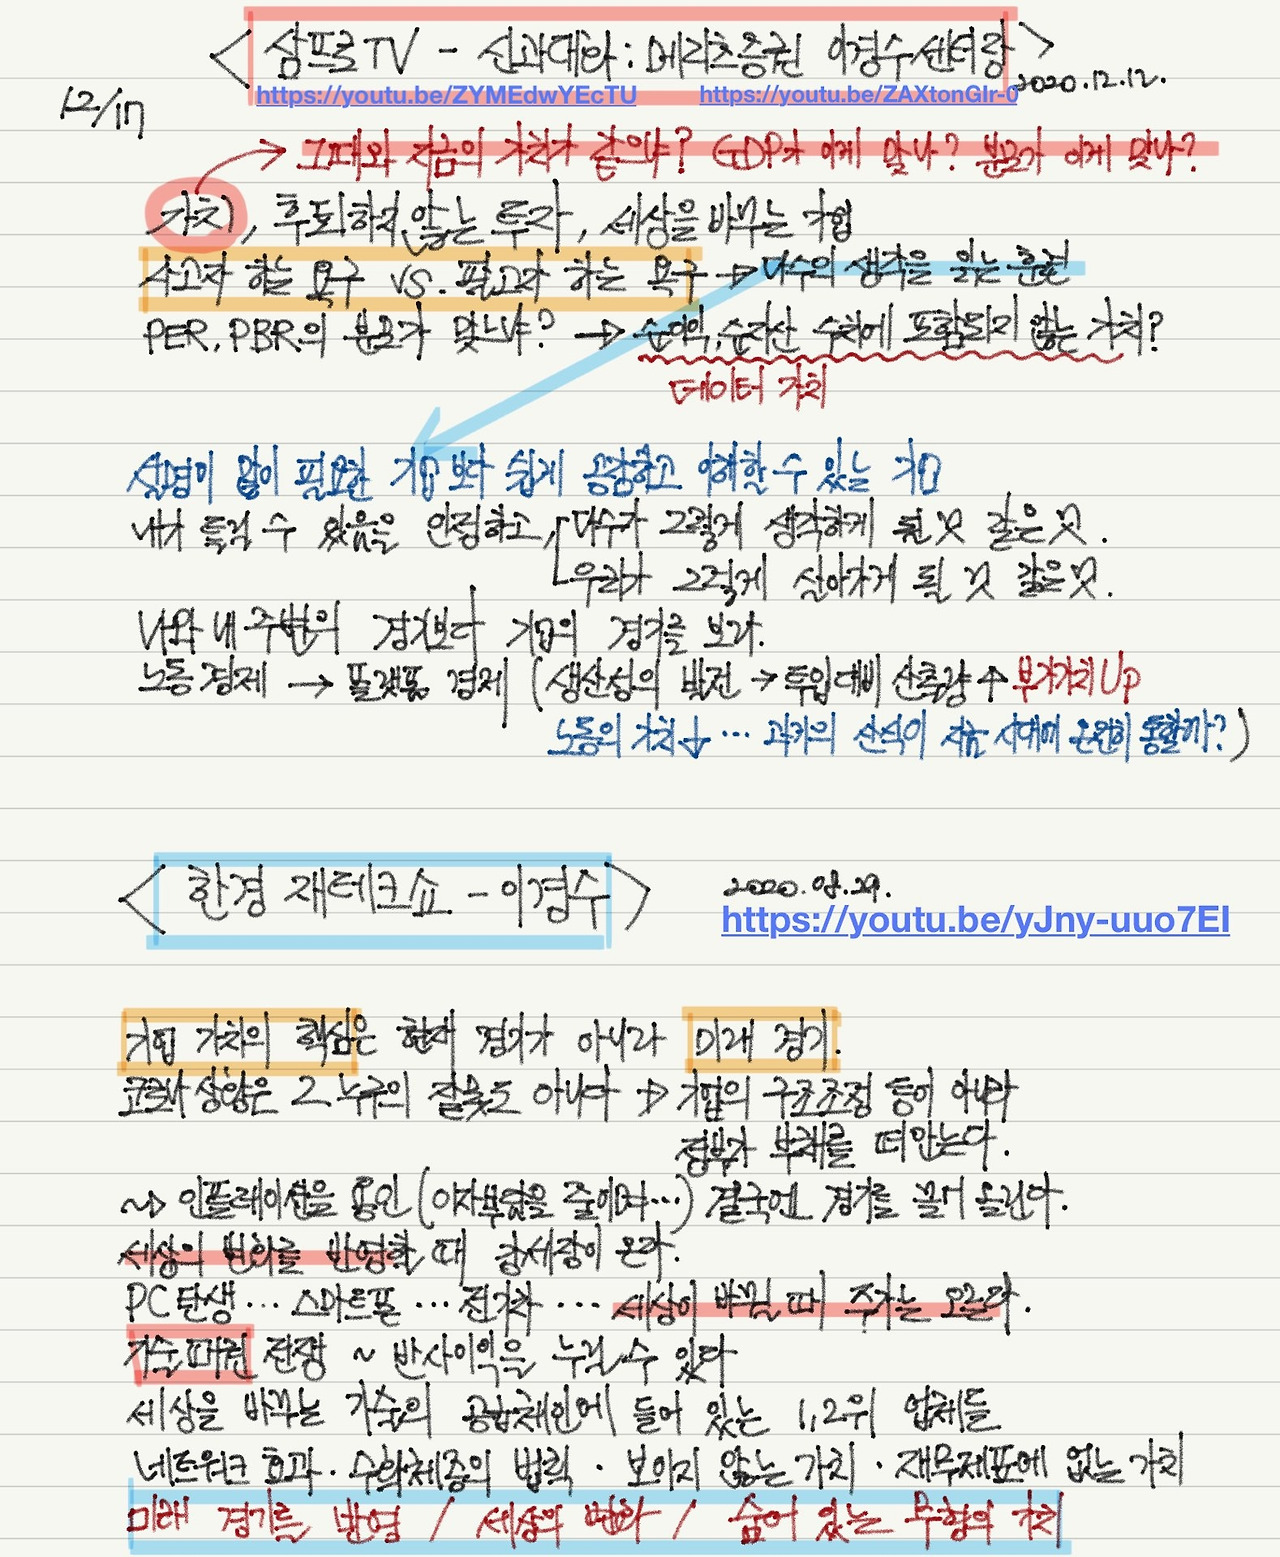 <삼프로TV - 신과대화: 메리츠증권 이경수센터장>
https://youtu.be/ZYMEdwYEcTU https://youtu.be/ZAXtonGIr-0 2020.12.12.
12/17
그때와 지금의 가치가 같으냐? GDP가 이게 맞나? 분모가 이게 맞나?
가치, 후회하지 않는 투자, 세상을 바꾸는 기업
사고자 하는 욕구 VS. 팔고자 하는 욕구 → 다수의 생각을 읽는 훈련
PER, PBR의 분모가 맞느냐? → 순이익, 순자산 수치에 포함되지 않는 가치?
데이터 가치
설명이 많이 필요한 기업보다 쉽게 공감하고 이해할 수 있는 기업
내가 틀릴 수 있음을 인정하고, 다수가 그렇게 생각하게 될 것 같은 것.
우리가 그렇게 살아가게 될 것 같은 것.
나와 내 주변의 경기보다 기업의 경기를 보라.
노동 경제 → 플랫폼 경제 (생산성의 발전 → 투입 대비 산출량↑ 부가가치 Up
노동의 가치↓ … 과거의 산식이 지금 시대에 온전히 통할까?)
<한경 재테크쇼 - 이경수> 2020.08.29.
https://youtu.be/yJny-uuo7EI
기업 가치의 핵심은 현재 경기가 아니라 미래 경기.
코로나 상황은 그 누구의 잘못도 아니다 → 기업의 구조조정 등이 아니라
정부가 부채를 떠안는다.
~→ 인플레이션을 용인 (이자부담을 줄이려…) 결국엔 경기를 끌어 올린다.
세상의 변화를 반영할 때 강세장이 온다.
PC탄생… 스마트폰 … 전기차 … 세상이 바뀔 때 주가는 오른다.
기술패권 전쟁 ~ 반사이익을 누릴 수 있다
세상을 바꾸는 기술의 공급체인에 들어 있는 1,2위 업체들
네트워크 효과 · 수확체증의 법칙 · 보이지 않는 가치 · 재무제표에 없는 가치
미래 경기를 반영 / 세상의 변화 / 숨어 있는 무형의 가치